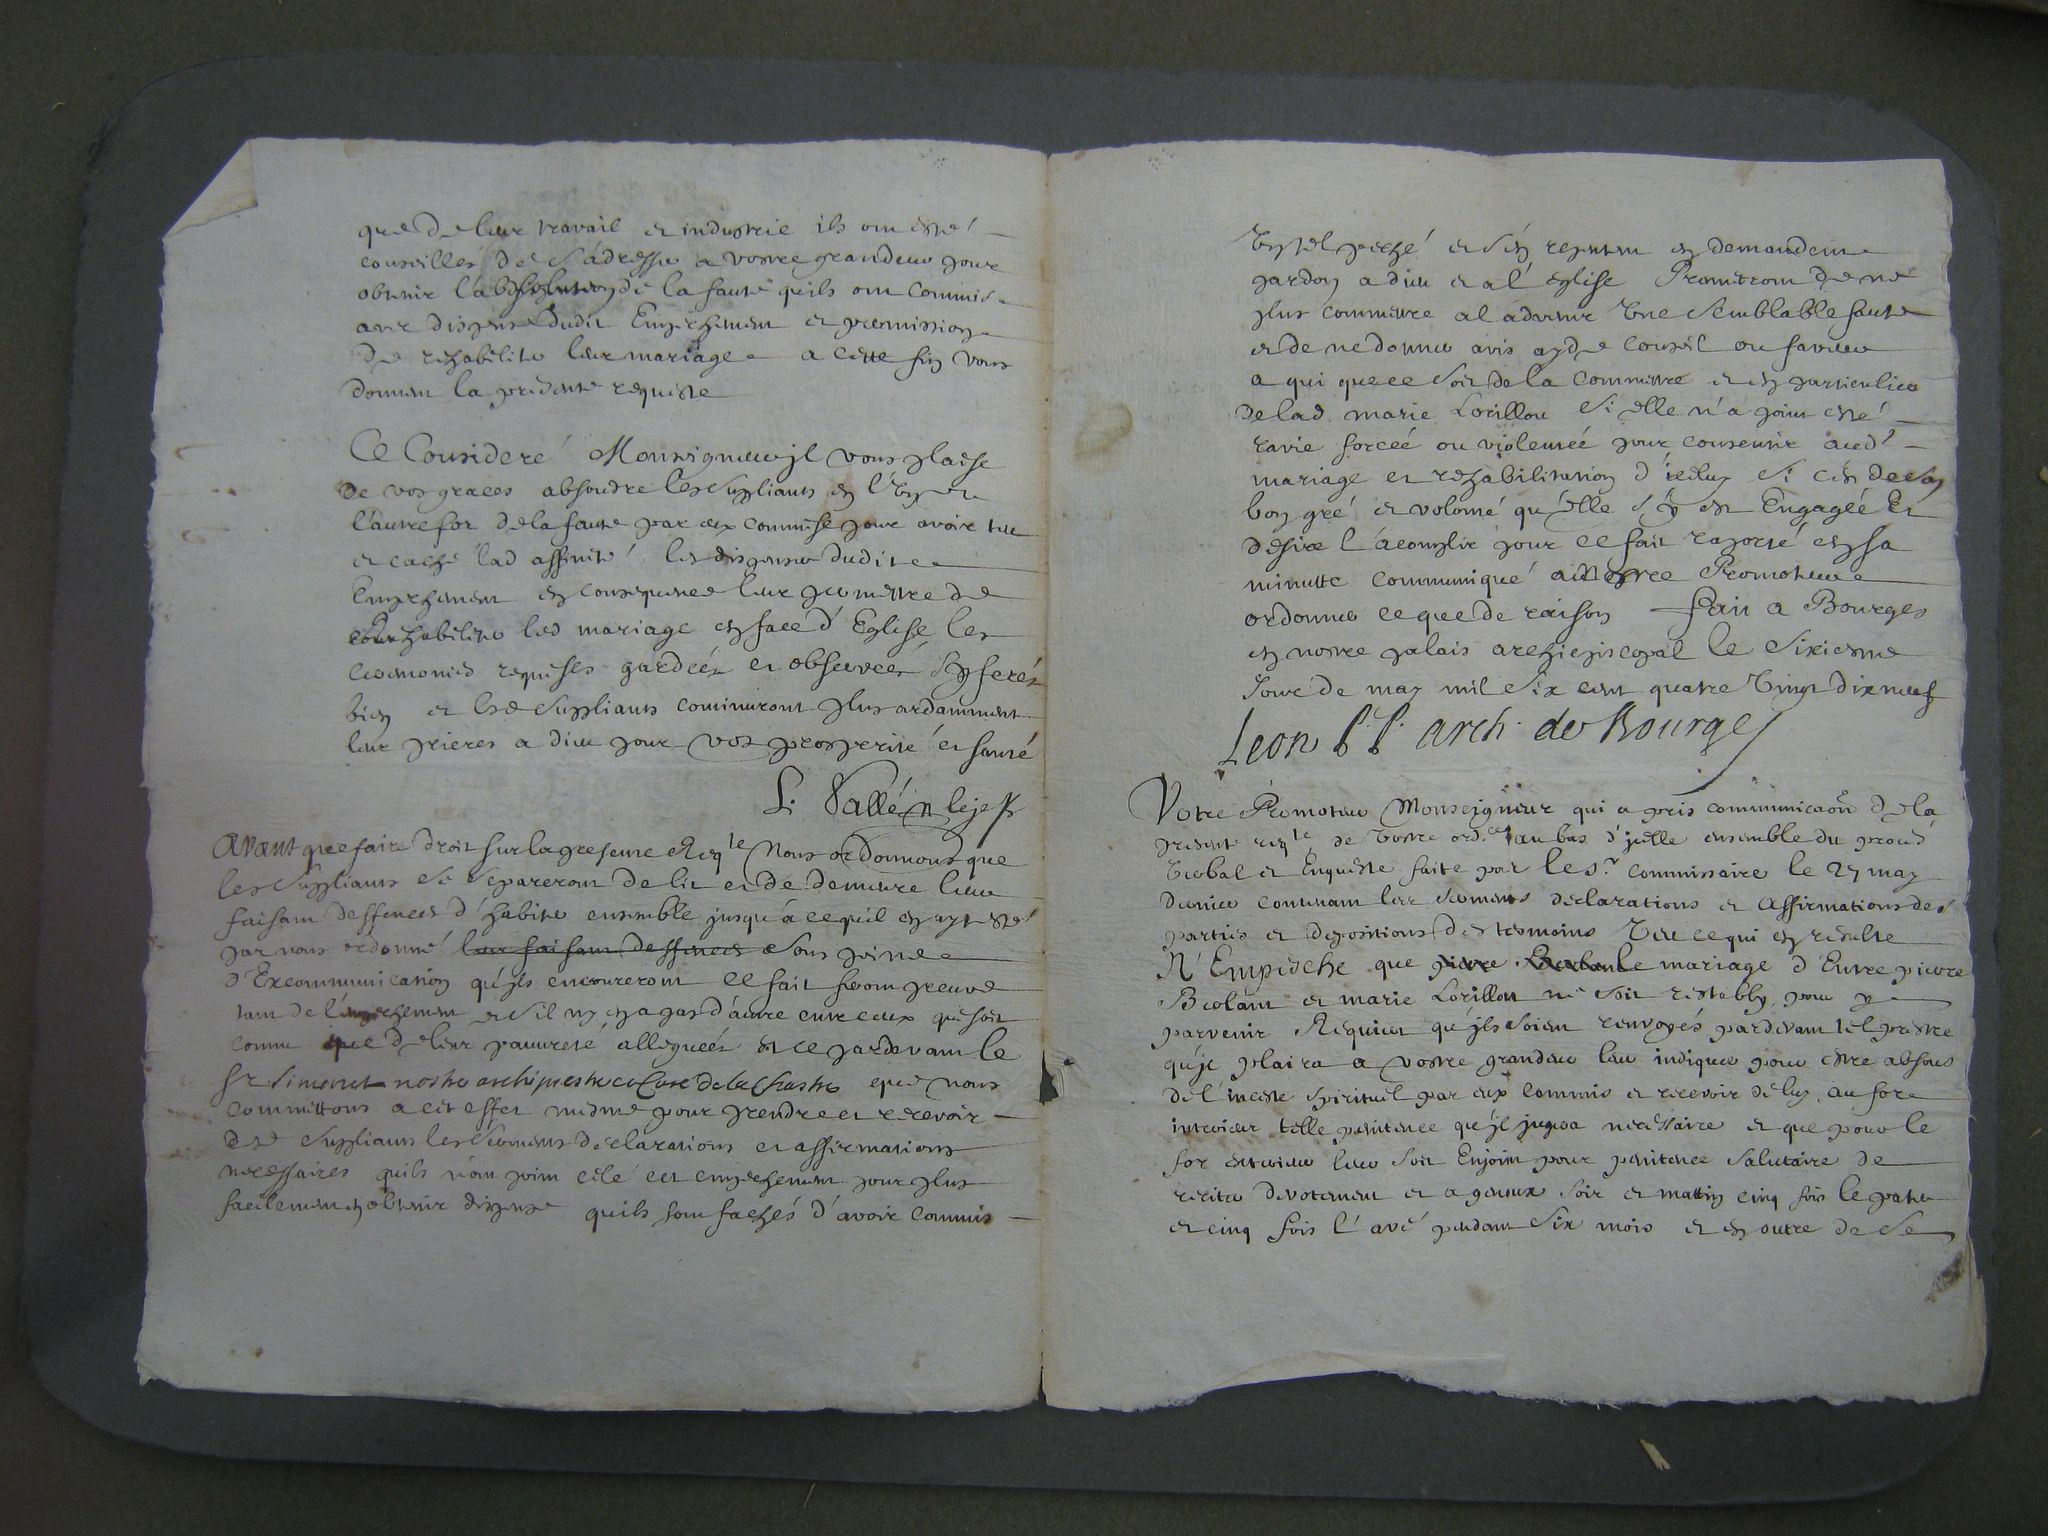 que de leur travail et industrie ils ont esté
conseillés de s'adresser a vostre grandeur pour
obtenir l'absolution de la faute quils ont commise
avec dispense dudit Empeschement et permission
de rehabiliter leur mariage a cette fin vous
donnent la presente requeste
Ce Consideré Monseigneur jl vous plaise
de vos graces absoudre les supliants en l'un et
l'autre for de la faute par eux commise pour avoir tue
et caché lad affinité les dispenser dudit
Empeschement en consequence leur permettre de
rehabiliter led mariage en face d'Eglise les
ceremonies requises gardées et observées sy ferés
bien et lesd supliants continuront plus ardamment
leur prieres a dieu pour vostre prosperité et santé
L. Vallée
Avant que faire droit sur la presente Req.te Nous ordonnons que
les supliants se separeront de lit et de demeure leur
faisant deffences d'habiter ensemble jusqu'a ce quil en ayt esté
par nous ordonné leur faisant deffences sous peine
d'Excommunication qu'jls encoureront ce fait feront preuve
tant de l'empeschement et s'il ny en a pas d'autre entre eux que soit
comm que de leur pauvreté alleguées et ce pardevant le
Sr Simonet nostre archiprestre et Curé de la Chastre que nous
commettons a cet effet mesme pour prendre et recevoir
desd supliants les serments declarations et affirmations
necessaires quils n'ont point celé cet empeschement pour plus
facilement obtenir dispense quils sont fachés d'avoir commis
Un tel peché et s'en repentent en demandent
pardon a dieu et a l'Eglise Promettront de ne
plus commettre a l'advenir Une semblable faute
et de ne donner avis ayde conseil ou faveur
a qui que ce soit de la commettre et en particulier
de lad marie Lorillou si elle n'a point esté
ravie forceé ou violenteé pour consentir aud
mariage et rehabilitation d'icelluy si c'est de son
bon gré et volonté qu'elle s'y est Engageé Et
desire l'acomplir pour ce fait raporté en sa
minutte communiqué a nostre Promoteur
ordonner ce que de raison fait a Bourges
en nostre palais archiepiscopal le sixiesme
Jour de may mil six cent quatre Vingt dix neuf
Leon P. P. arch. de Bourges
Votre Promoteur Monseigneur qui a pris communicaõn de la
presente req.te de vostre ord.ce au bas d'jcelle ensemble du proces
Verbal et Enqueste faite par le s.r commissaire le 27 may
dernier contenant les serments declarations et affirmations des
parties et depositions des tesmoins Veu ce qui en resulte
N'Empesche que pierre Berlan le mariage d'Entre pierre
Berlant et marie Lorillou ne soit restably pour y
parvenir Requiert qu'jls soient renvoyés pardevant tel prestre
qu'jl plaira a vostre grandeur leur indiquer pour estre absous
de l'inceste spirituel par eux commis et recevoir de luy au for
interieur telle penitence qu'jl jugera necessaire et que pour le
for exterieur leur soit Enjoint pour penitence salutaire de
reciter devotement et a genoux soir et mattin cinq fois le pater
et cinq fois l'avé pendant six mois et en outre de se